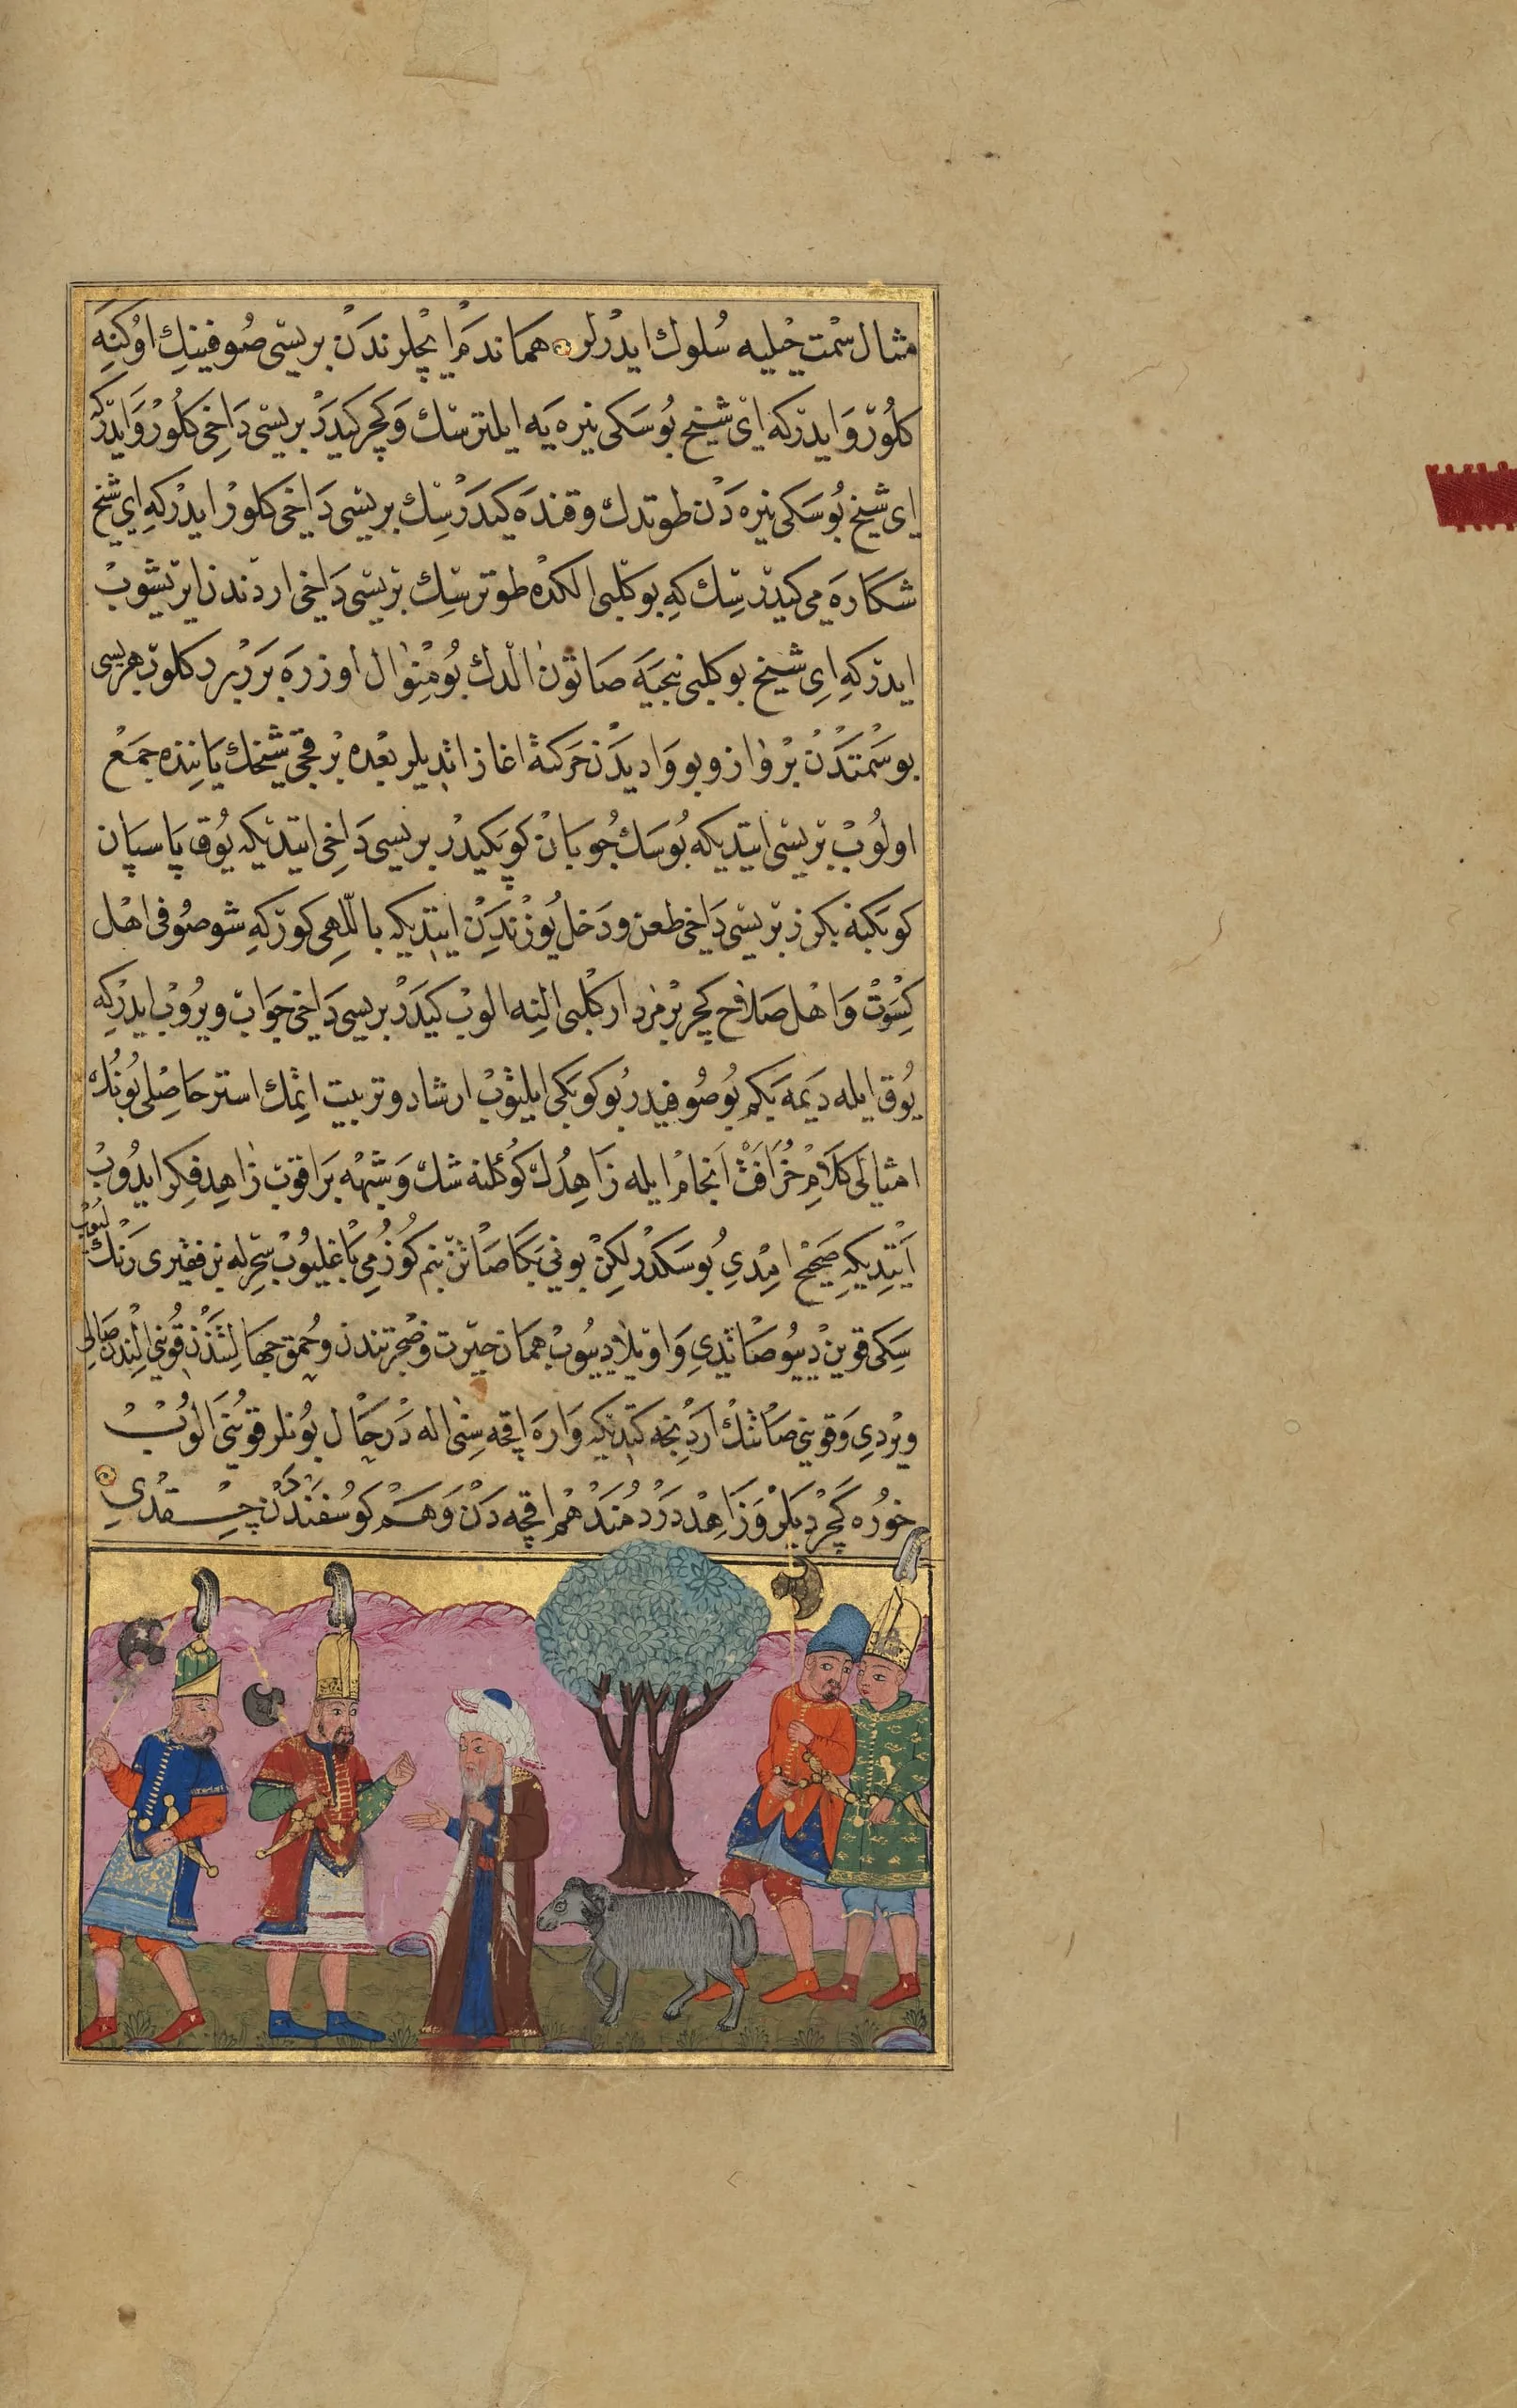 مثال سمت حیلیه سلوك ایدرلر هماندم ایچلرندن بریسی صوفینك اوكنه
كلور و ایدركه ای شیخ بو سكی نیره یه ایلترسك و كچر كیدر بریسی داخی كلور و ایدركه
ای شیخ بو سكی نیره دن طوتدك و قنده كیدرسك بریسی داخی كلور ایدركه ای شیخ
شكاره می كیدرسك كه بو كلبی الكده طوترسك بریسی داخی اردندن ایریشوب
ایدركه ای شیخ بو كلبی نیجیه صاتون الدك بو منوال اوزره بربر كلوب هربسی
بو سمتدن پرواز و بو وادیدن حركته اغاز اتدیلر بعده بر قچی شیخك یاننده جمع
اولوب بریسی ایتدیكه بو سك چوبان كوپكیدر بریسی داخی ایتدیكه یوق پاسپان
كوپكنه بكزر بریسی داخی طعن و دخل یوزندن ایتدیكه باللهی كوركه شو صوفی اهل
كسوت و اهل صلاح كچر بر مردار كلبی النه الوب كیدر بریسی داخی جواب ویروب ایدركه
یوق ایله دیمه یكم بو صوفیدر بو كوپكی ایلیوب ارشاد و تربیت اتمك استر حاصلی بونك
امثالی كلام خرافت انجام ایله زاهدك كوكلنه شك و شبهه براقوب زاهد فكر ایدوب
ایتدیكه صحیح امدی بو سكدر لكن بونی بكا صاتن بنم كوزمی باغلیوب سحرله بن فقیری رنك
لیوب
سكی قوین دییو صاتدی واویلا دییوب همان حیرت و ضجرتندن و حمق جهالتندن قوینی الندن صالی
ویردی و قوینی صاتنك اردنجه كتدیكه واره اقچه سنی اله درحال بونلر قوینی الوب
خوره كچردیلر و زاهد دردمند هم اقچه دن و هم كوسفنددن چقدی